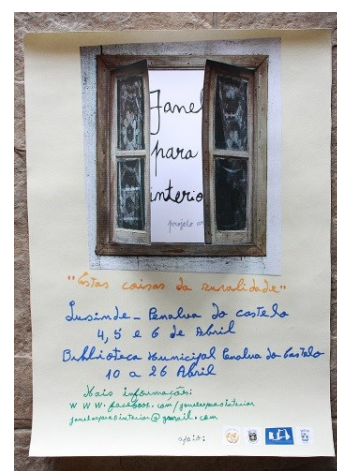 Janel
para
interio
projeto
"Estas coisas da ruralidade"
Lusinde - Penalva do Castelo
4, 5 e 6 de Abril
Biblioteca Municipal Penalva do Castelo
10 a 26 Abril
Mais informação:
www.facebook.com/janelaparaointerior
janelaparaointerior@gmail.com
apoio: